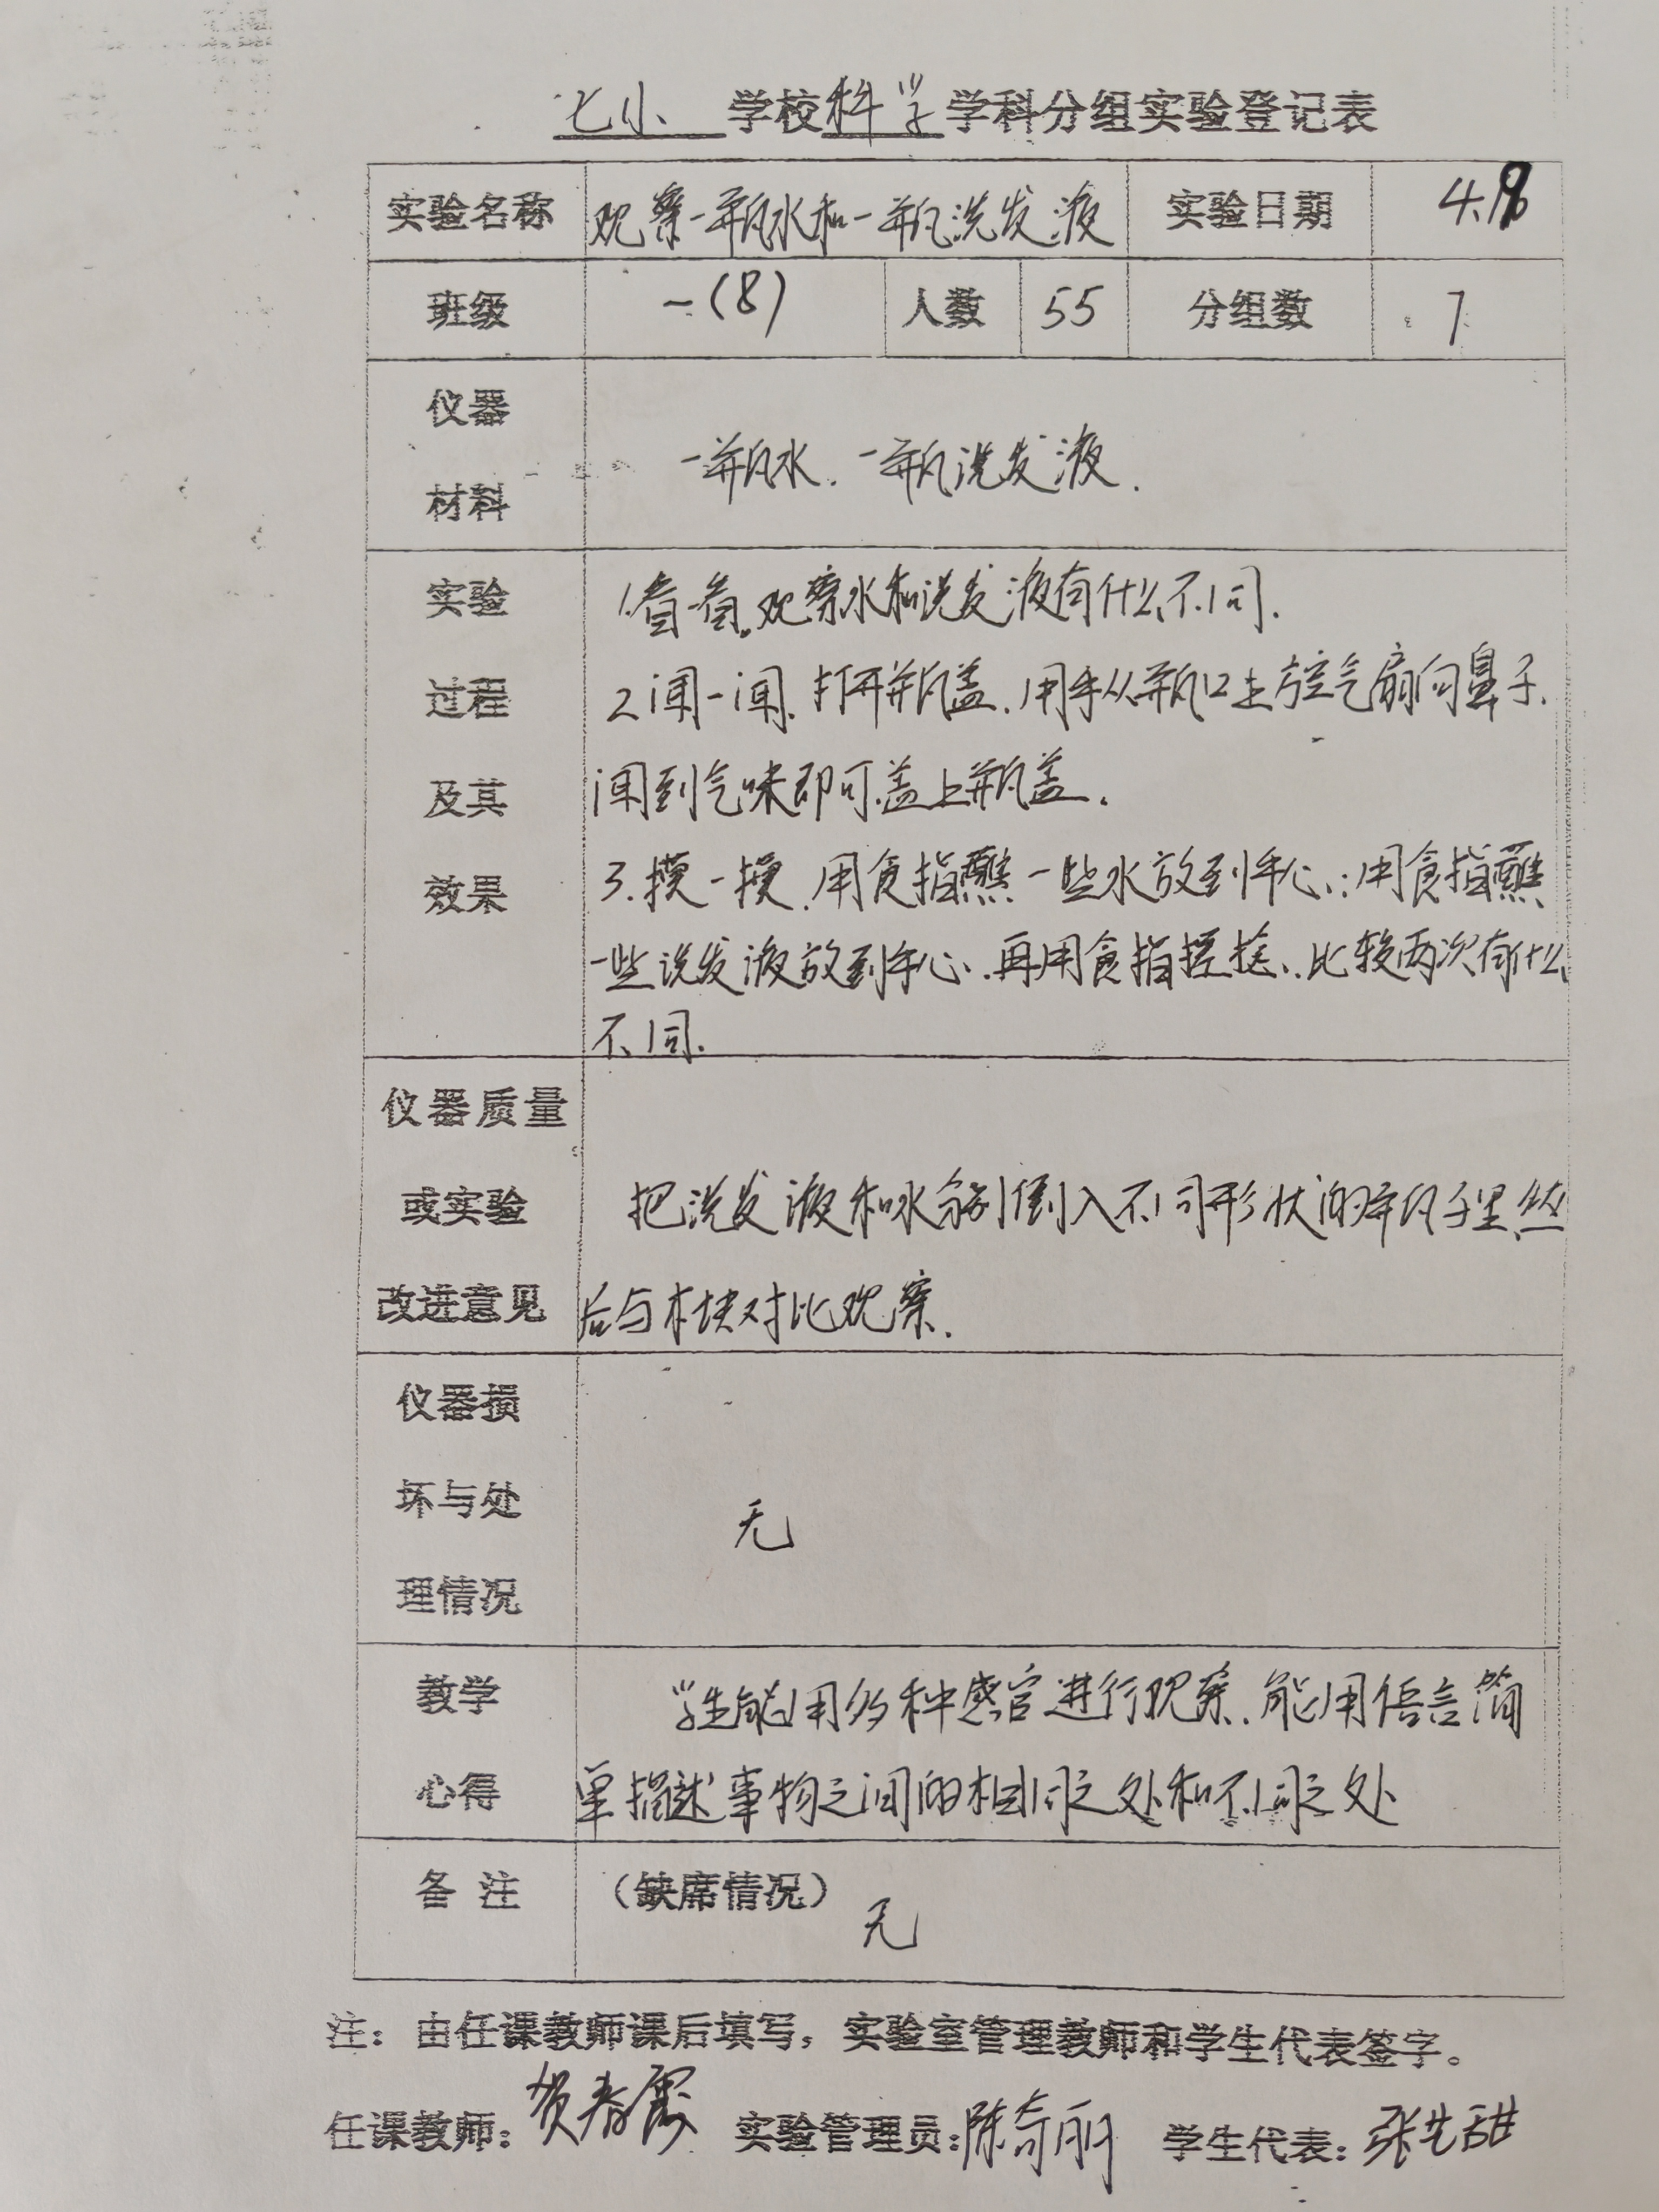 七小 学校 科学 学科分组实验登记表
实验名称 观察一瓶水和一瓶洗发液 实验日期 4.
班级 一(8) 人数 55 分组数 7
仪器
一瓶水. 一瓶洗发液.
材料
实验 1.看一看.观察水和洗发液有什么不同.
过程 2.闻一闻.打开瓶盖.用手从瓶口上方空气扇向鼻子.
及其 闻到气味即可.盖上瓶盖.
效果 3.摸一摸.用食指蘸一些水放到手心.;用食指蘸
一些洗发液放到手心.再用食指搓搓.比较两次有什么
不同.
仪器质量
或实验 把洗发液和水分别倒入不同形状的瓶子里.然
改进意见 后与木块对比观察.
仪器损
坏与处 无
理情况
教学 学生能用多种感官进行观察.能用语言简
心得 单描述事物之间的相同之处和不同之处
备注 (缺席情况) 无
注：由任课教师课后填写，实验室管理教师和学生代表签字。
任课教师：贺春霞 实验管理员：陈奇丽 学生代表：张艺甜